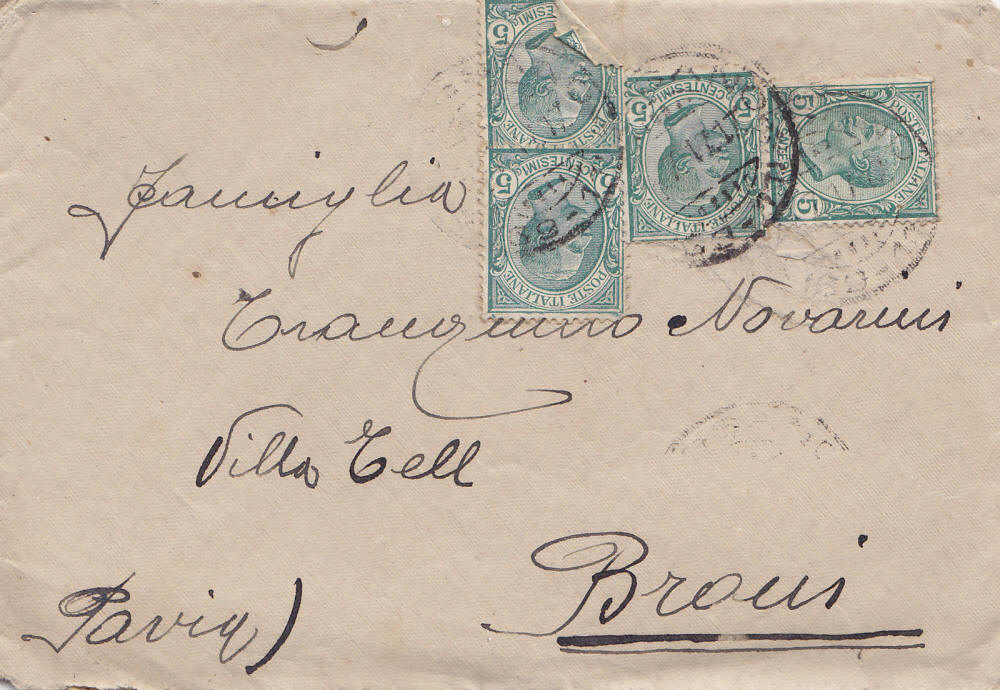 CENTESIMI 5
POSTE ITALIANE
5 CENTESIMI 5
POSTE ITALIANE
5 CENTESIMI 5
POSTE ITALIANE
5 5
POSTE ITALIANE
Famiglia
Tranquillo Novarini
Villa Tell
Broni
Pavia)